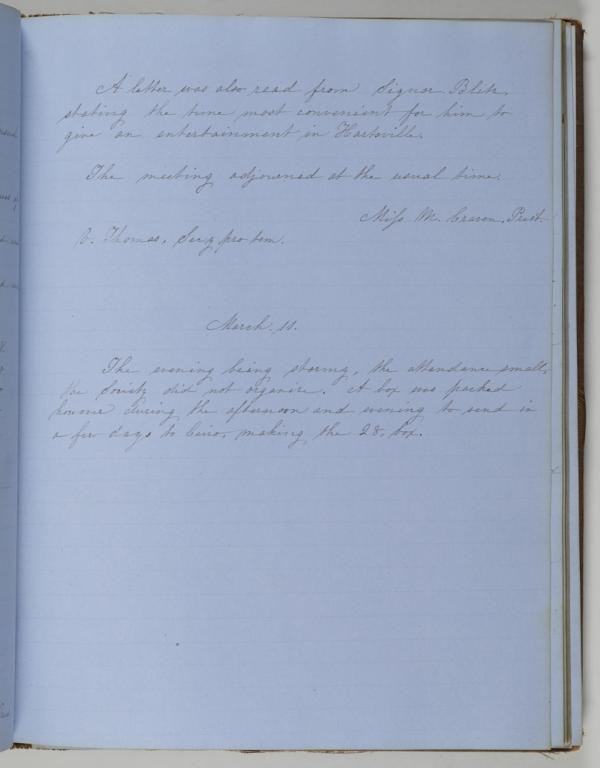 A letter was also read from Signor Blitz,
stating the time most convenient for him to
give an entertainment in Hartsville.
The meeting adjourned at the usual time.
Miss M. Craven, Prest.
V. Thomas, Secy pro tem.
March 11.
The evening being stormy, the attendance small,
the Society did not organize. A box was packed
however during the afternoon and evening to send in
a few days to Cairo, making the 28, box.